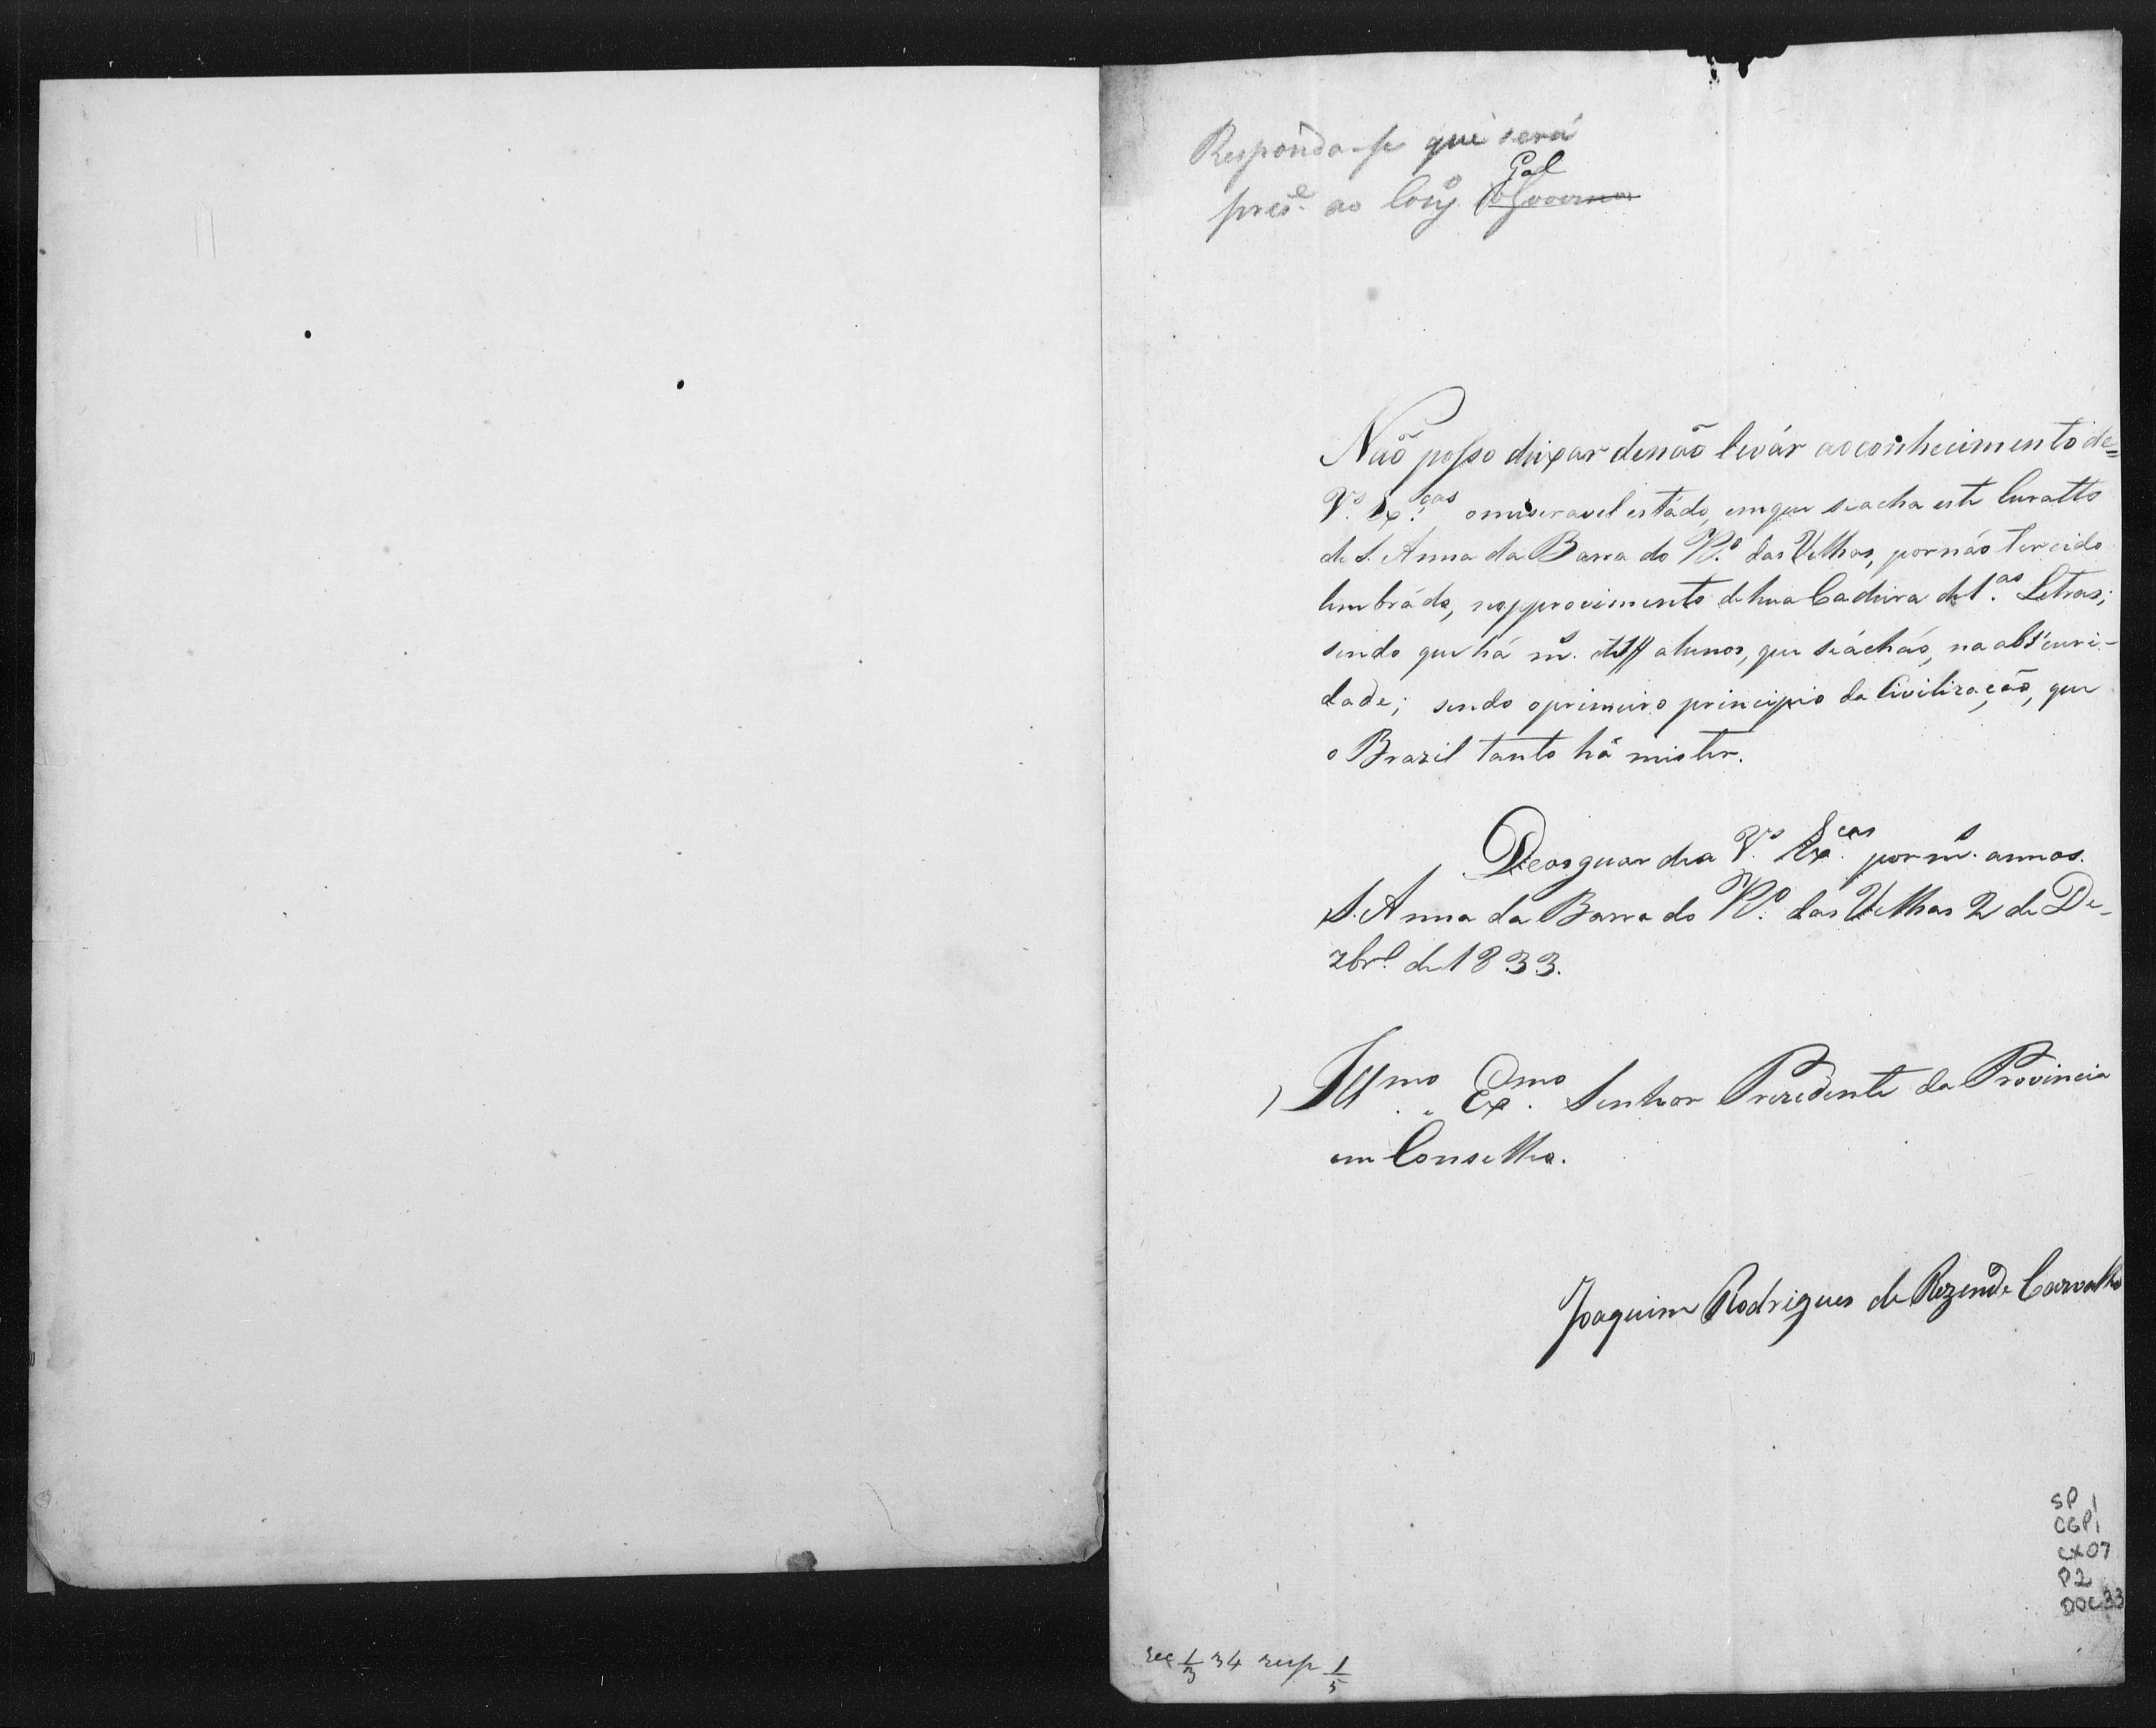 Responda-se que será
Gal
pres.e ao Con.o do Governo
Não posso deixar denão levár aoconhecimento de=
V.s Ex.cas omiseravel estádo, emque seacha este Curatto
de S. Anna da Barra do R.o das Velhas, pornáo ter cido
lembrádo, nopprovimento dehua Cadeira de 1.as Letras;
sendo que há m.s de alunos, que seácháo, na abscuri-
dade; sendo oprimeiro principio da Civilização, que
o Brazil tanto há mister.
Deos guar dea V.s Ex.cas por m.s annos.
S. Anna da Barra do R.o das Velhas 2 de De-
zbr.o de 1833.
Ill.mo e Ex.mo Senhor Prezidente da Provincia
em Conselho.
Joaquim Rodrigues de Rezende Carvalho
SP
CGP1
CX07
P2
DOC33
rec 1/3 34 resp 1/5